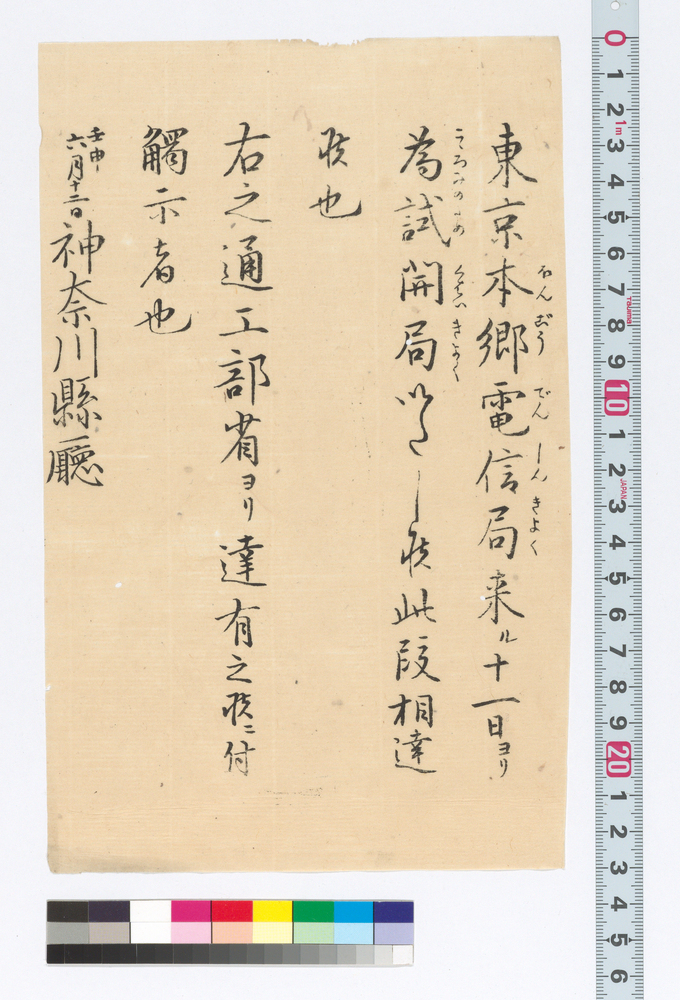 東京本郷電信局来ル十一日ヨリ
ほんごう でんしんきよく
為試開局いたし候此段相達
こゝろみのため かいきよく
候也
右之通工部省ヨリ達有之候ニ付
觸示者也
壬申
六月十二日
神奈川縣廳
0 1 2 3 4 5 6 7 8 9 10 1 2 3 4 5 6 7 8 9 20 1 2 3 4 5 6
1m
TAJIMA
JAPAN